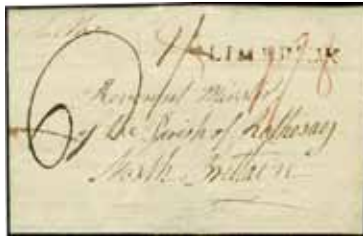 LIMERICK
Reverend Minister
of the Parish of Rothesay
North Britain